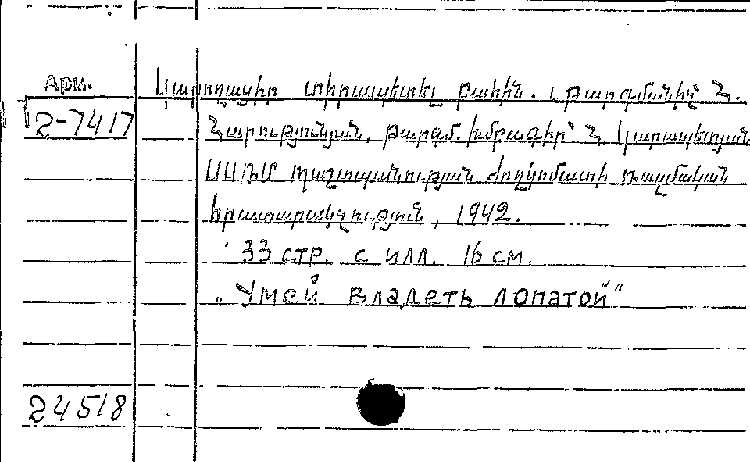 Арм.
2-7417
Կարողացիր տիրապետել բահին. Թարգմանիչ՝ Հ.
Հարությունյան, թարգմ. խմբագիր՝ Հ. Կարապետյան
ՍՍՌՄ պաշտպանության ժողկոմատի ռազմական
հրատարակչություն, 1942.
33 стр. с илл. 16 см.
„Умей владеть лопатой“
24518